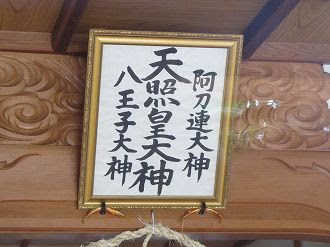 阿刀連大神
天照皇大神
八王子大神